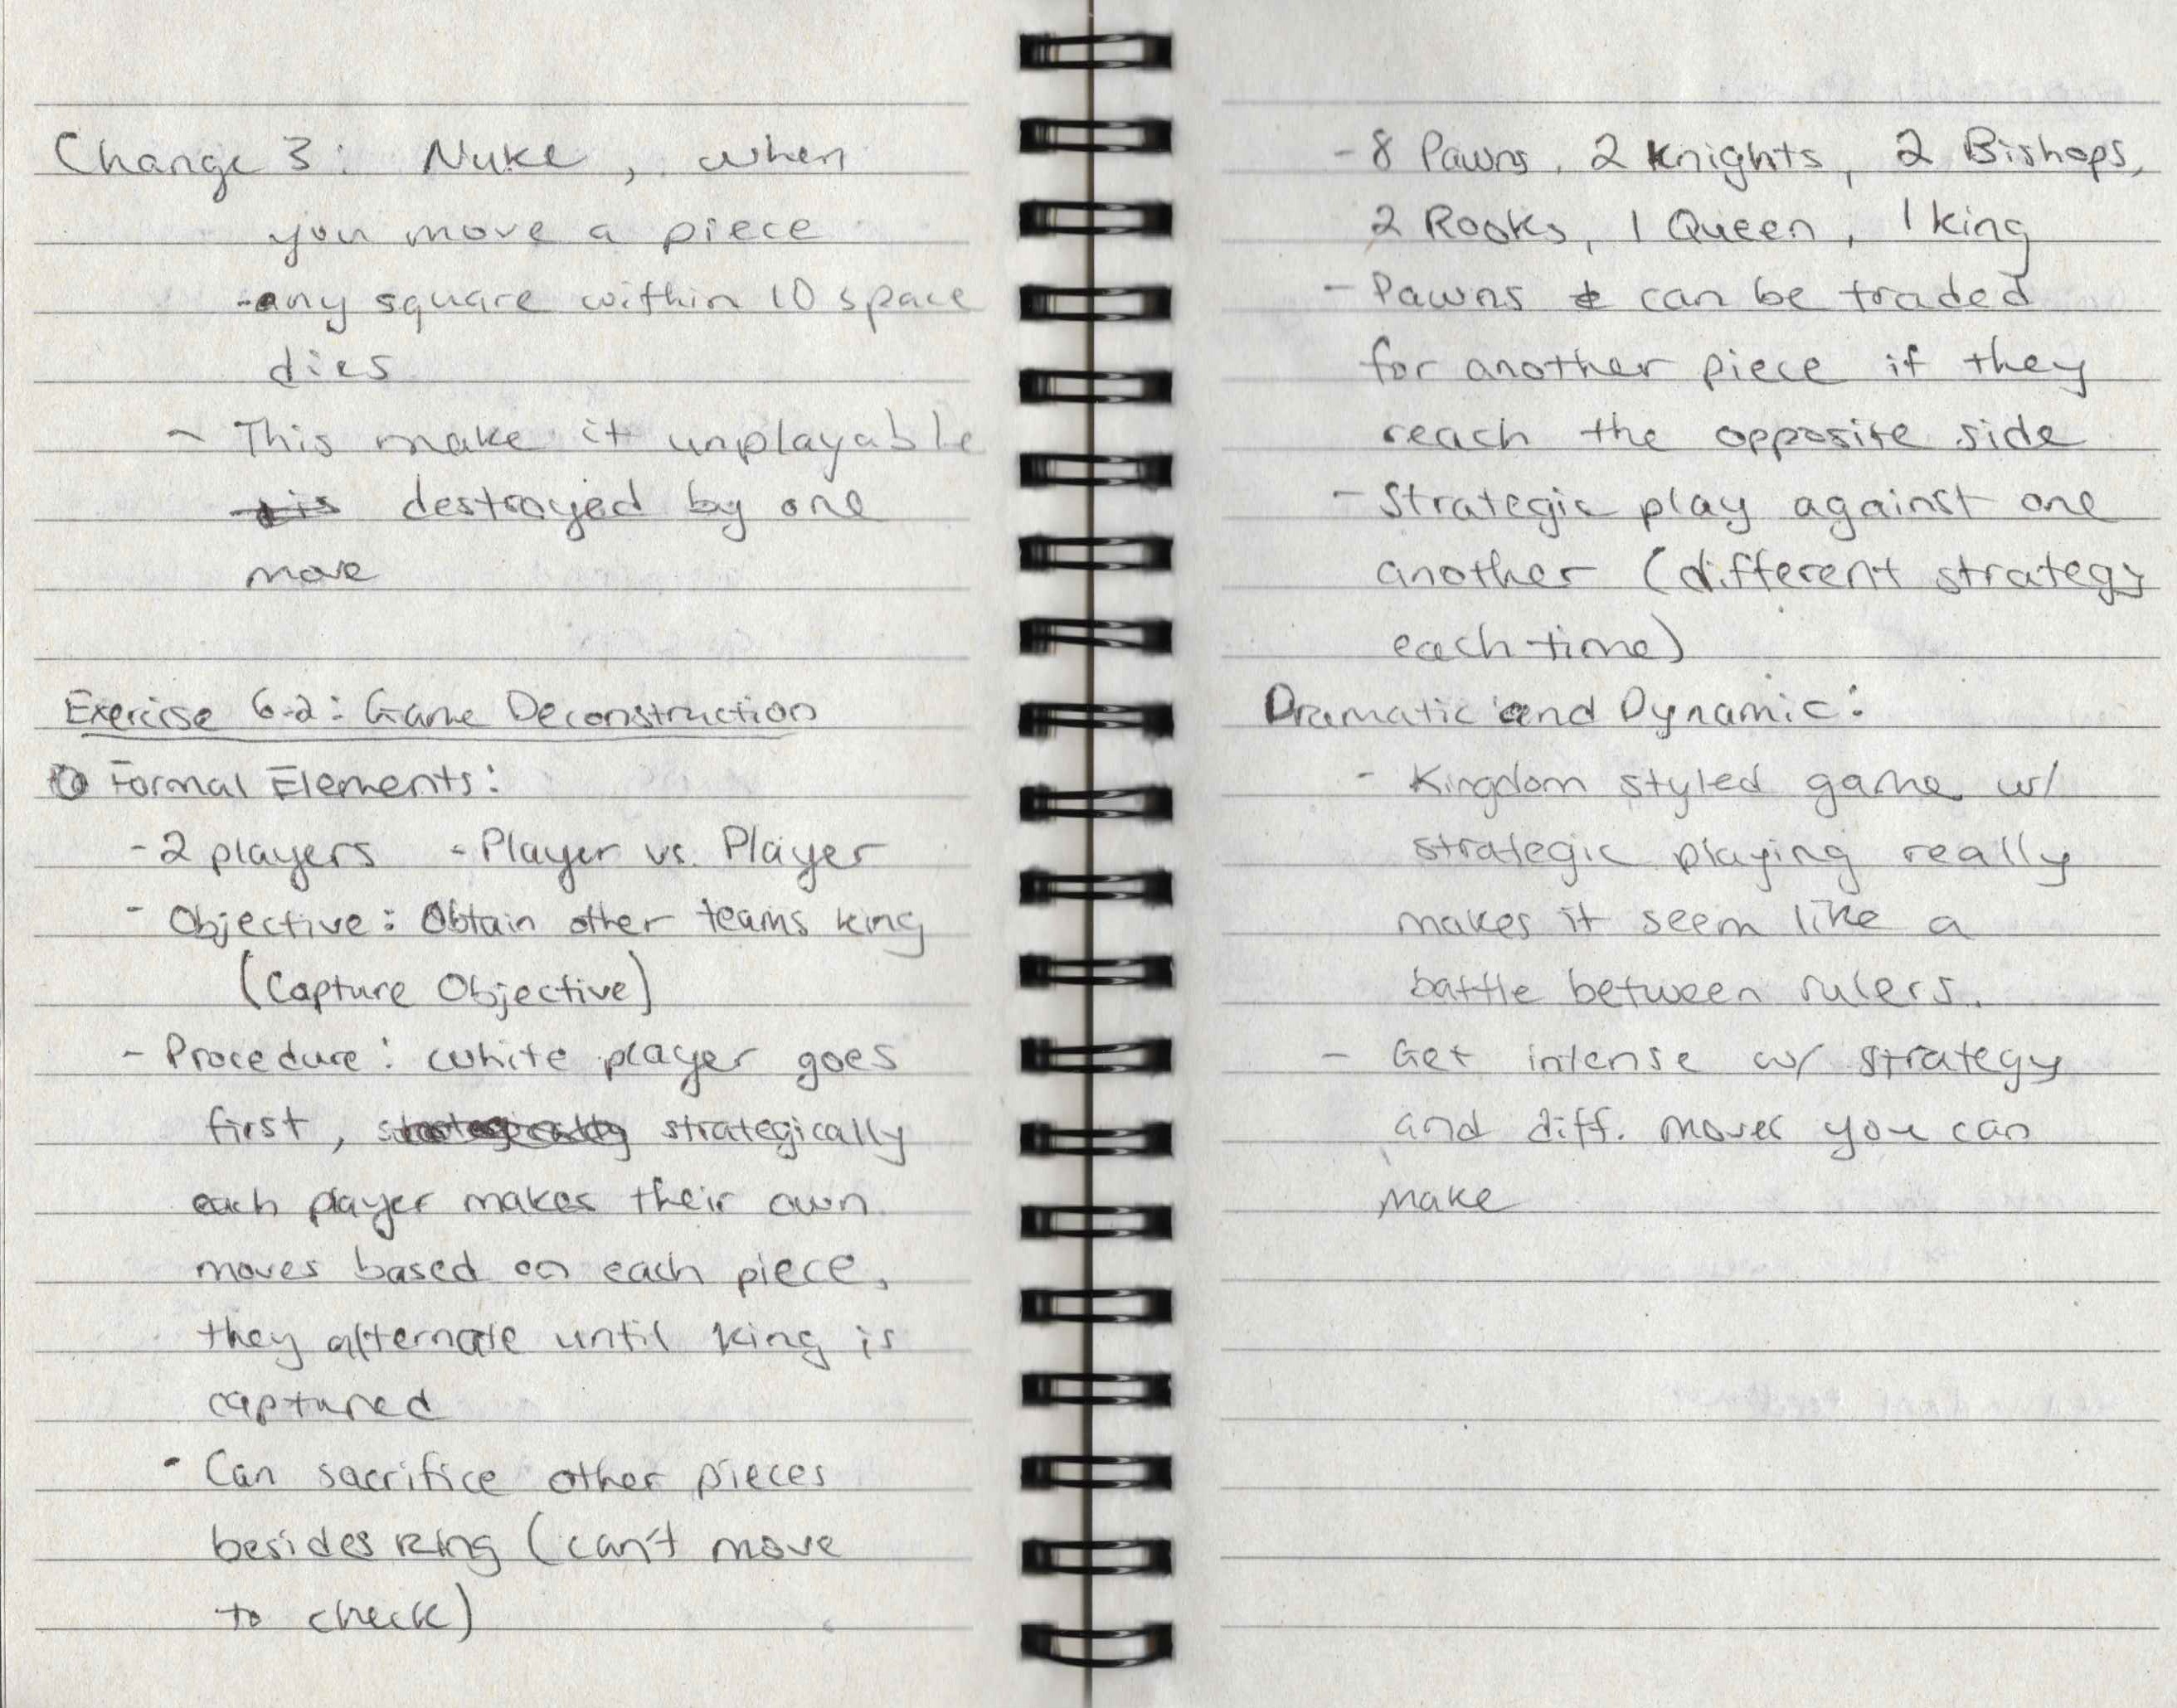 Change 3: Nuke, when
you move a piece
-any square within 10 space
dies
- This make it unplayable
destroyed by one
move
Exercise 6-2: Game Deconstruction
Formal Elements:
-2 players - Player vs. Player
- Objective: Obtain other teams king
(Capture Objective)
- Procedure: white player goes
first, strategically
each player makes their own
moves based on each piece,
they alternate until king is
captured
- Can sacrifice other pieces
besides king (can't move
to check)
- 8 Pawns, 2 Knights, 2 Bishops,
2 Rooks, 1 Queen, 1 king
- Pawns can be traded
for another piece if they
reach the opposite side
- Strategic play against one
another (different strategy
each time)
Dramatic and Dynamic:
- Kingdom styled game w/
strategic playing really
makes it seem like a
battle between rulers.
- Get intense w/ strategy
and diff. moves you can
make